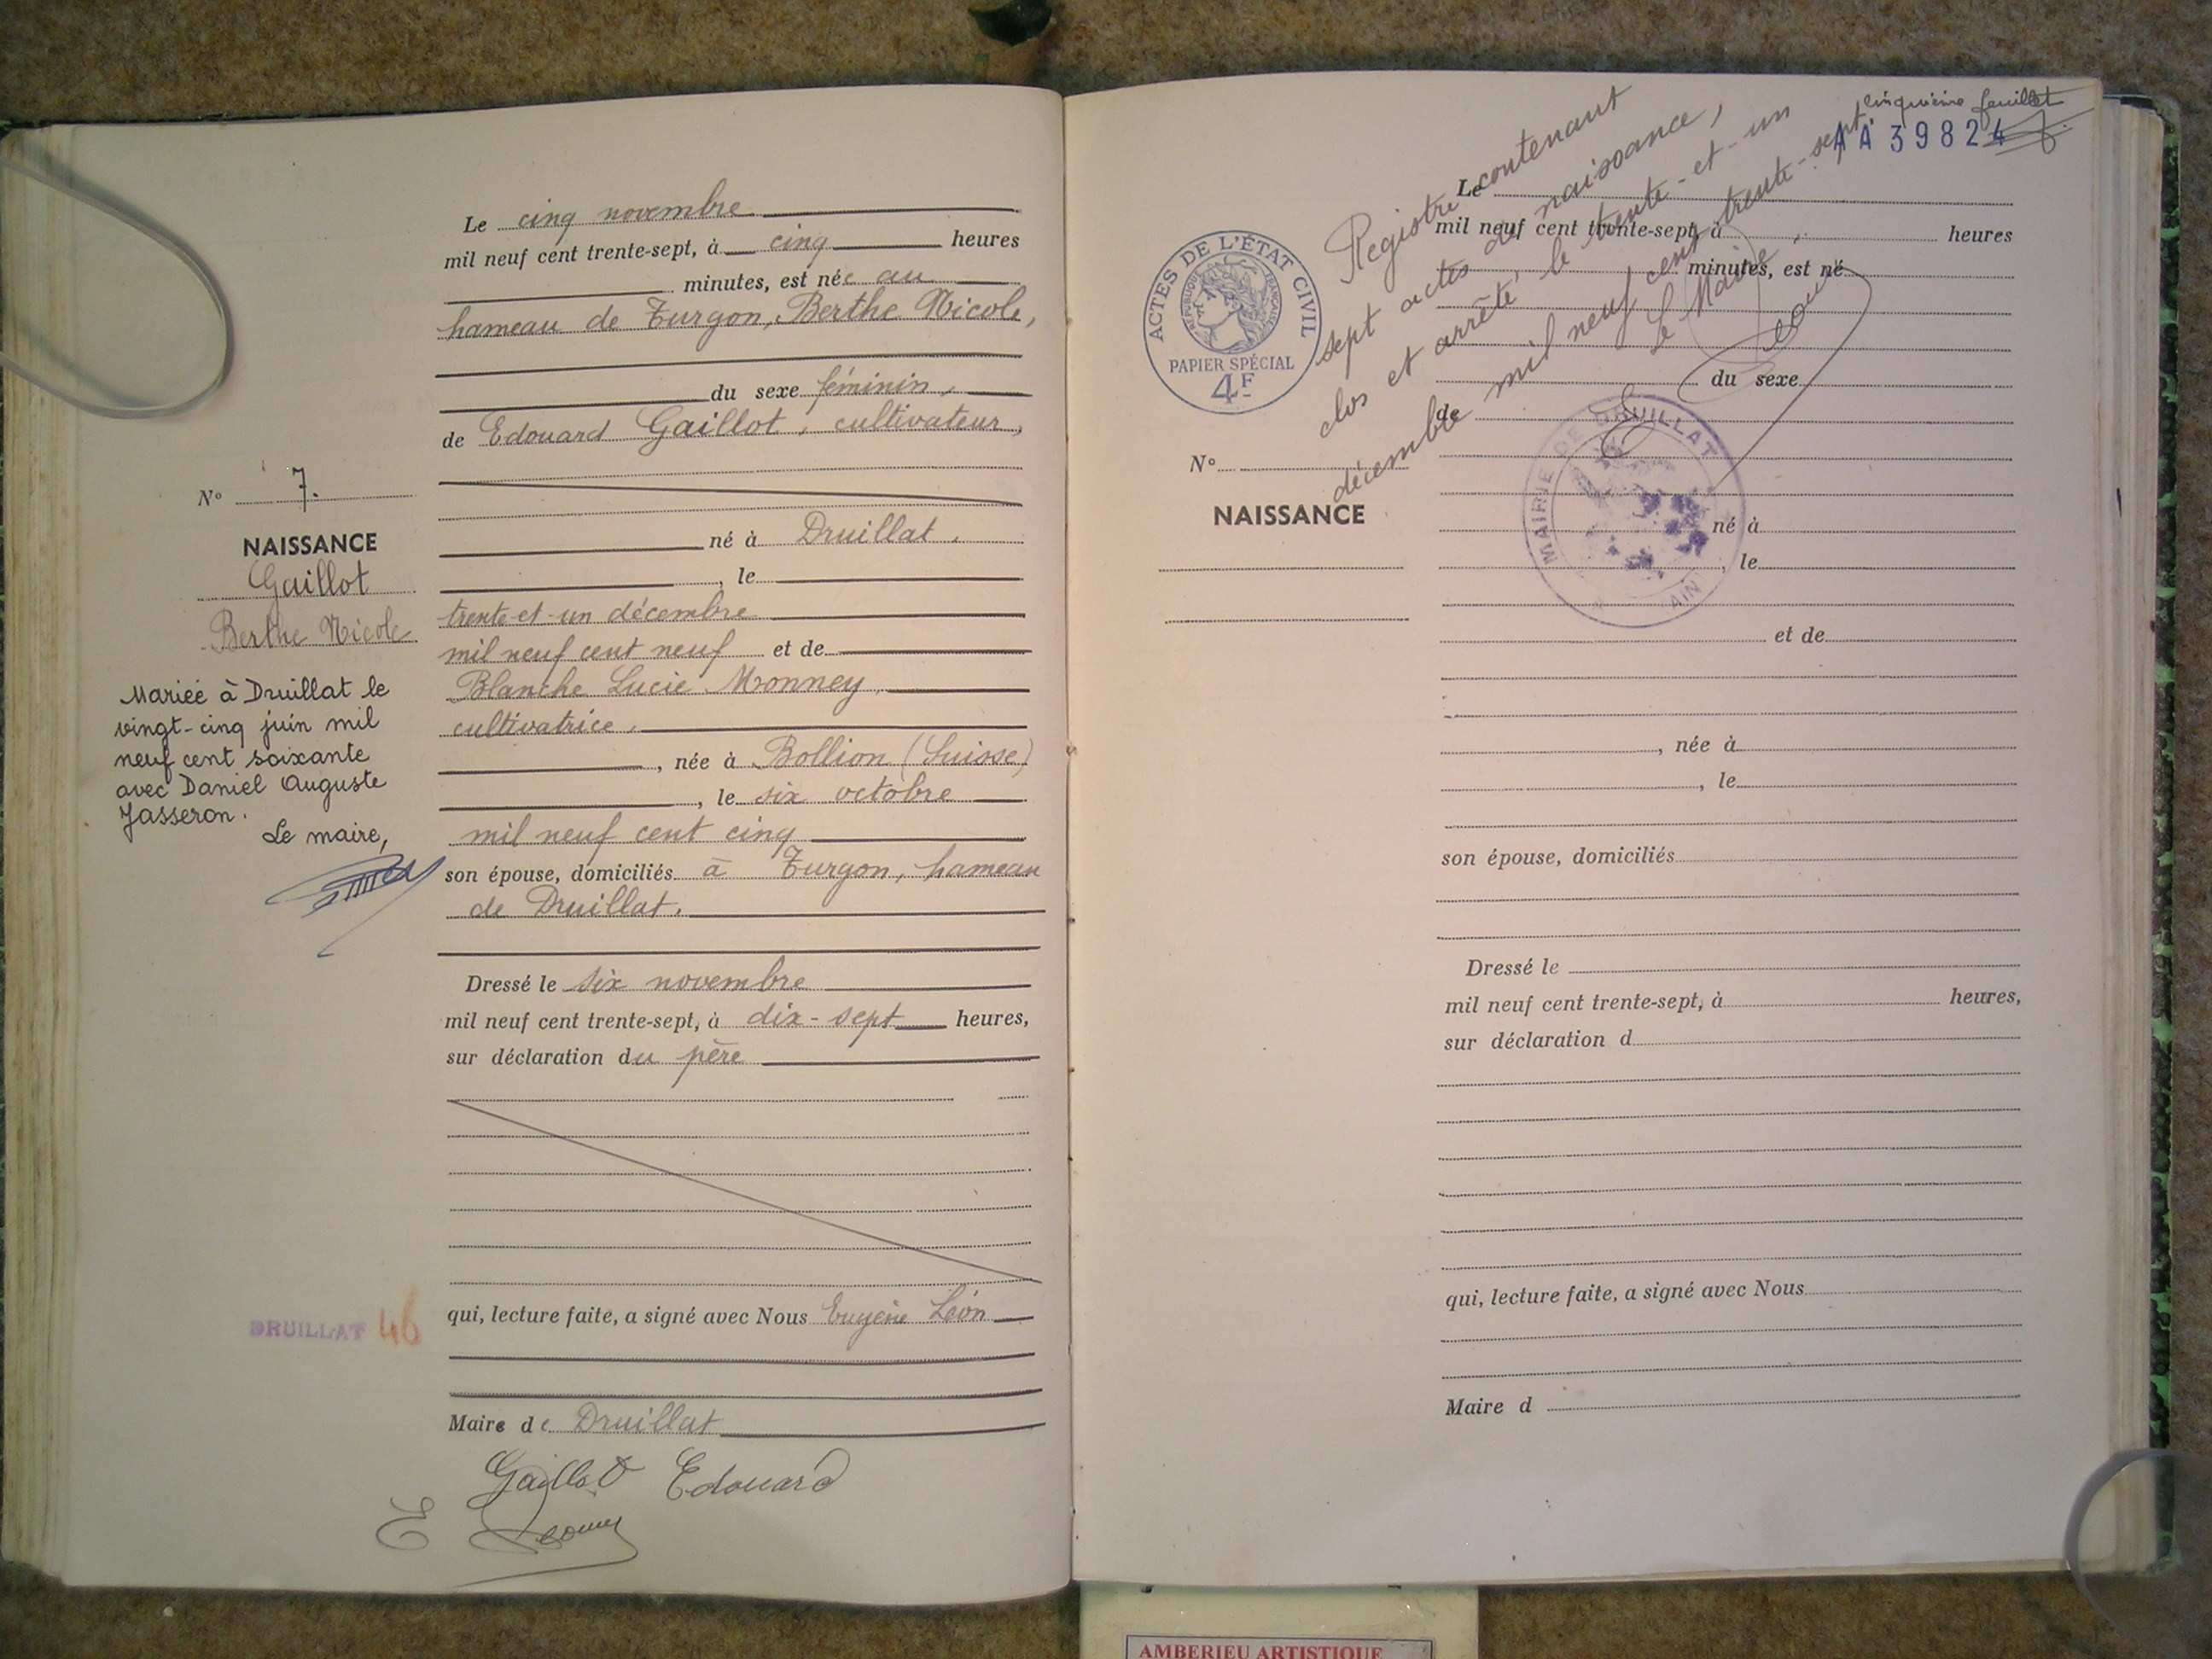 Le cinq novembre
mil neuf cent trente-sept, à cinq heures
minutes, est née au
hameau de Turgon, Berthe Nicole,
du sexe féminin,
de Edouard Gaillot, cultivateur,
né à Druillat,
, le
trente-et-un décembre
mil neuf cent neuf et de
Blanche Lucie Monney,
cultivatrice,
, née à Bollion (Suisse)
, le six octobre
mil neuf cent cinq
son épouse, domiciliés à Turgon, hameau
de Druillat.
Dressé le six novembre
mil neuf cent trente-sept, à dix-sept heures,
sur déclaration du père
qui, lecture faite, a signé avec Nous Eugène Léon
Maire de Druillat
Gaillot Edouard
E
N° 7.
NAISSANCE
Gaillot
Berthe Nicole
Mariée à Druillat le
vingt-cinq juin mil
neuf cent soixante
avec Daniel Auguste
Jasseron.
Le maire,
DRUILLAT 46
cinquième feuillet
AA 39824
Registre contenant
sept actes de naissance,
clos et arrêté, le trente-et-un
décembre mil neuf cent trente-sept.
Le Maire,
E
ACTES DE L'ÉTAT CIVIL
RÉPUBLIQUE FRANÇAISE
PAPIER SPÉCIAL
4F
MAIRIE DE DRUILLAT
AIN
N°
NAISSANCE
Le
mil neuf cent trente-sept, à heures
minutes, est né
du sexe
de
né à
, le
et de
, née à
, le
son épouse, domiciliés
Dressé le
mil neuf cent trente-sept, à heures,
sur déclaration d
qui, lecture faite, a signé avec Nous
Maire d
AMBERIEU ARTISTIQUE